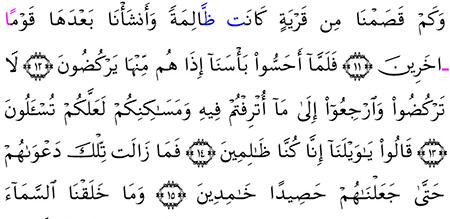 وَكَمْ قَصَمْنَا مِن قَرْيَةٍ كَانَت ظَّالِمَةً وَأَنشَأْنَا بَعْدَهَا قَوْمًا
اخَرِينَ ﴿١١﴾ فَلَمَّآ أَحَسُّوا۟ بَأْسَنَآ إِذَا هُم مِّنْهَا يَرْكُضُونَ ﴿١٢﴾ لَا
تَرْكُضُوا۟ وَٱرْجِعُوٓا۟ إِلَىٰ مَآ أُتْرِفْتُمْ فِيهِ وَمَسَـٰكِنِكُمْ لَعَلَّكُمْ تُسْـَٔلُونَ
﴿١٣﴾ قَالُوا۟ يَـٰوَيْلَنَآ إِنَّا كُنَّا ظَـٰلِمِينَ ﴿١٤﴾ فَمَا زَالَت تِّلْكَ دَعْوَىٰهُمْ
حَتَّىٰ جَعَلْنَـٰهُمْ حَصِيدًا خَـٰمِدِينَ ﴿١٥﴾ وَمَا خَلَقْنَا ٱلسَّمَآءَ